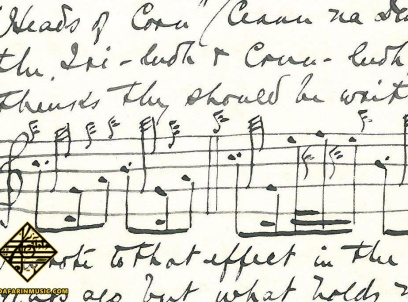 "Heads of Corn" (Ceann na
the, Tri-ludh & Crun-ludh
thinks they should be writ
note to that effect in the
ago but what holds
DAFARINMUSIC.COM